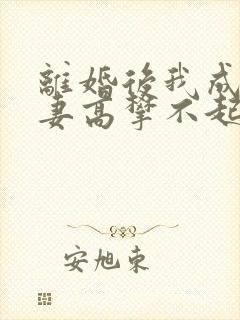 離婚後我成
妻高攀不起
安旭東